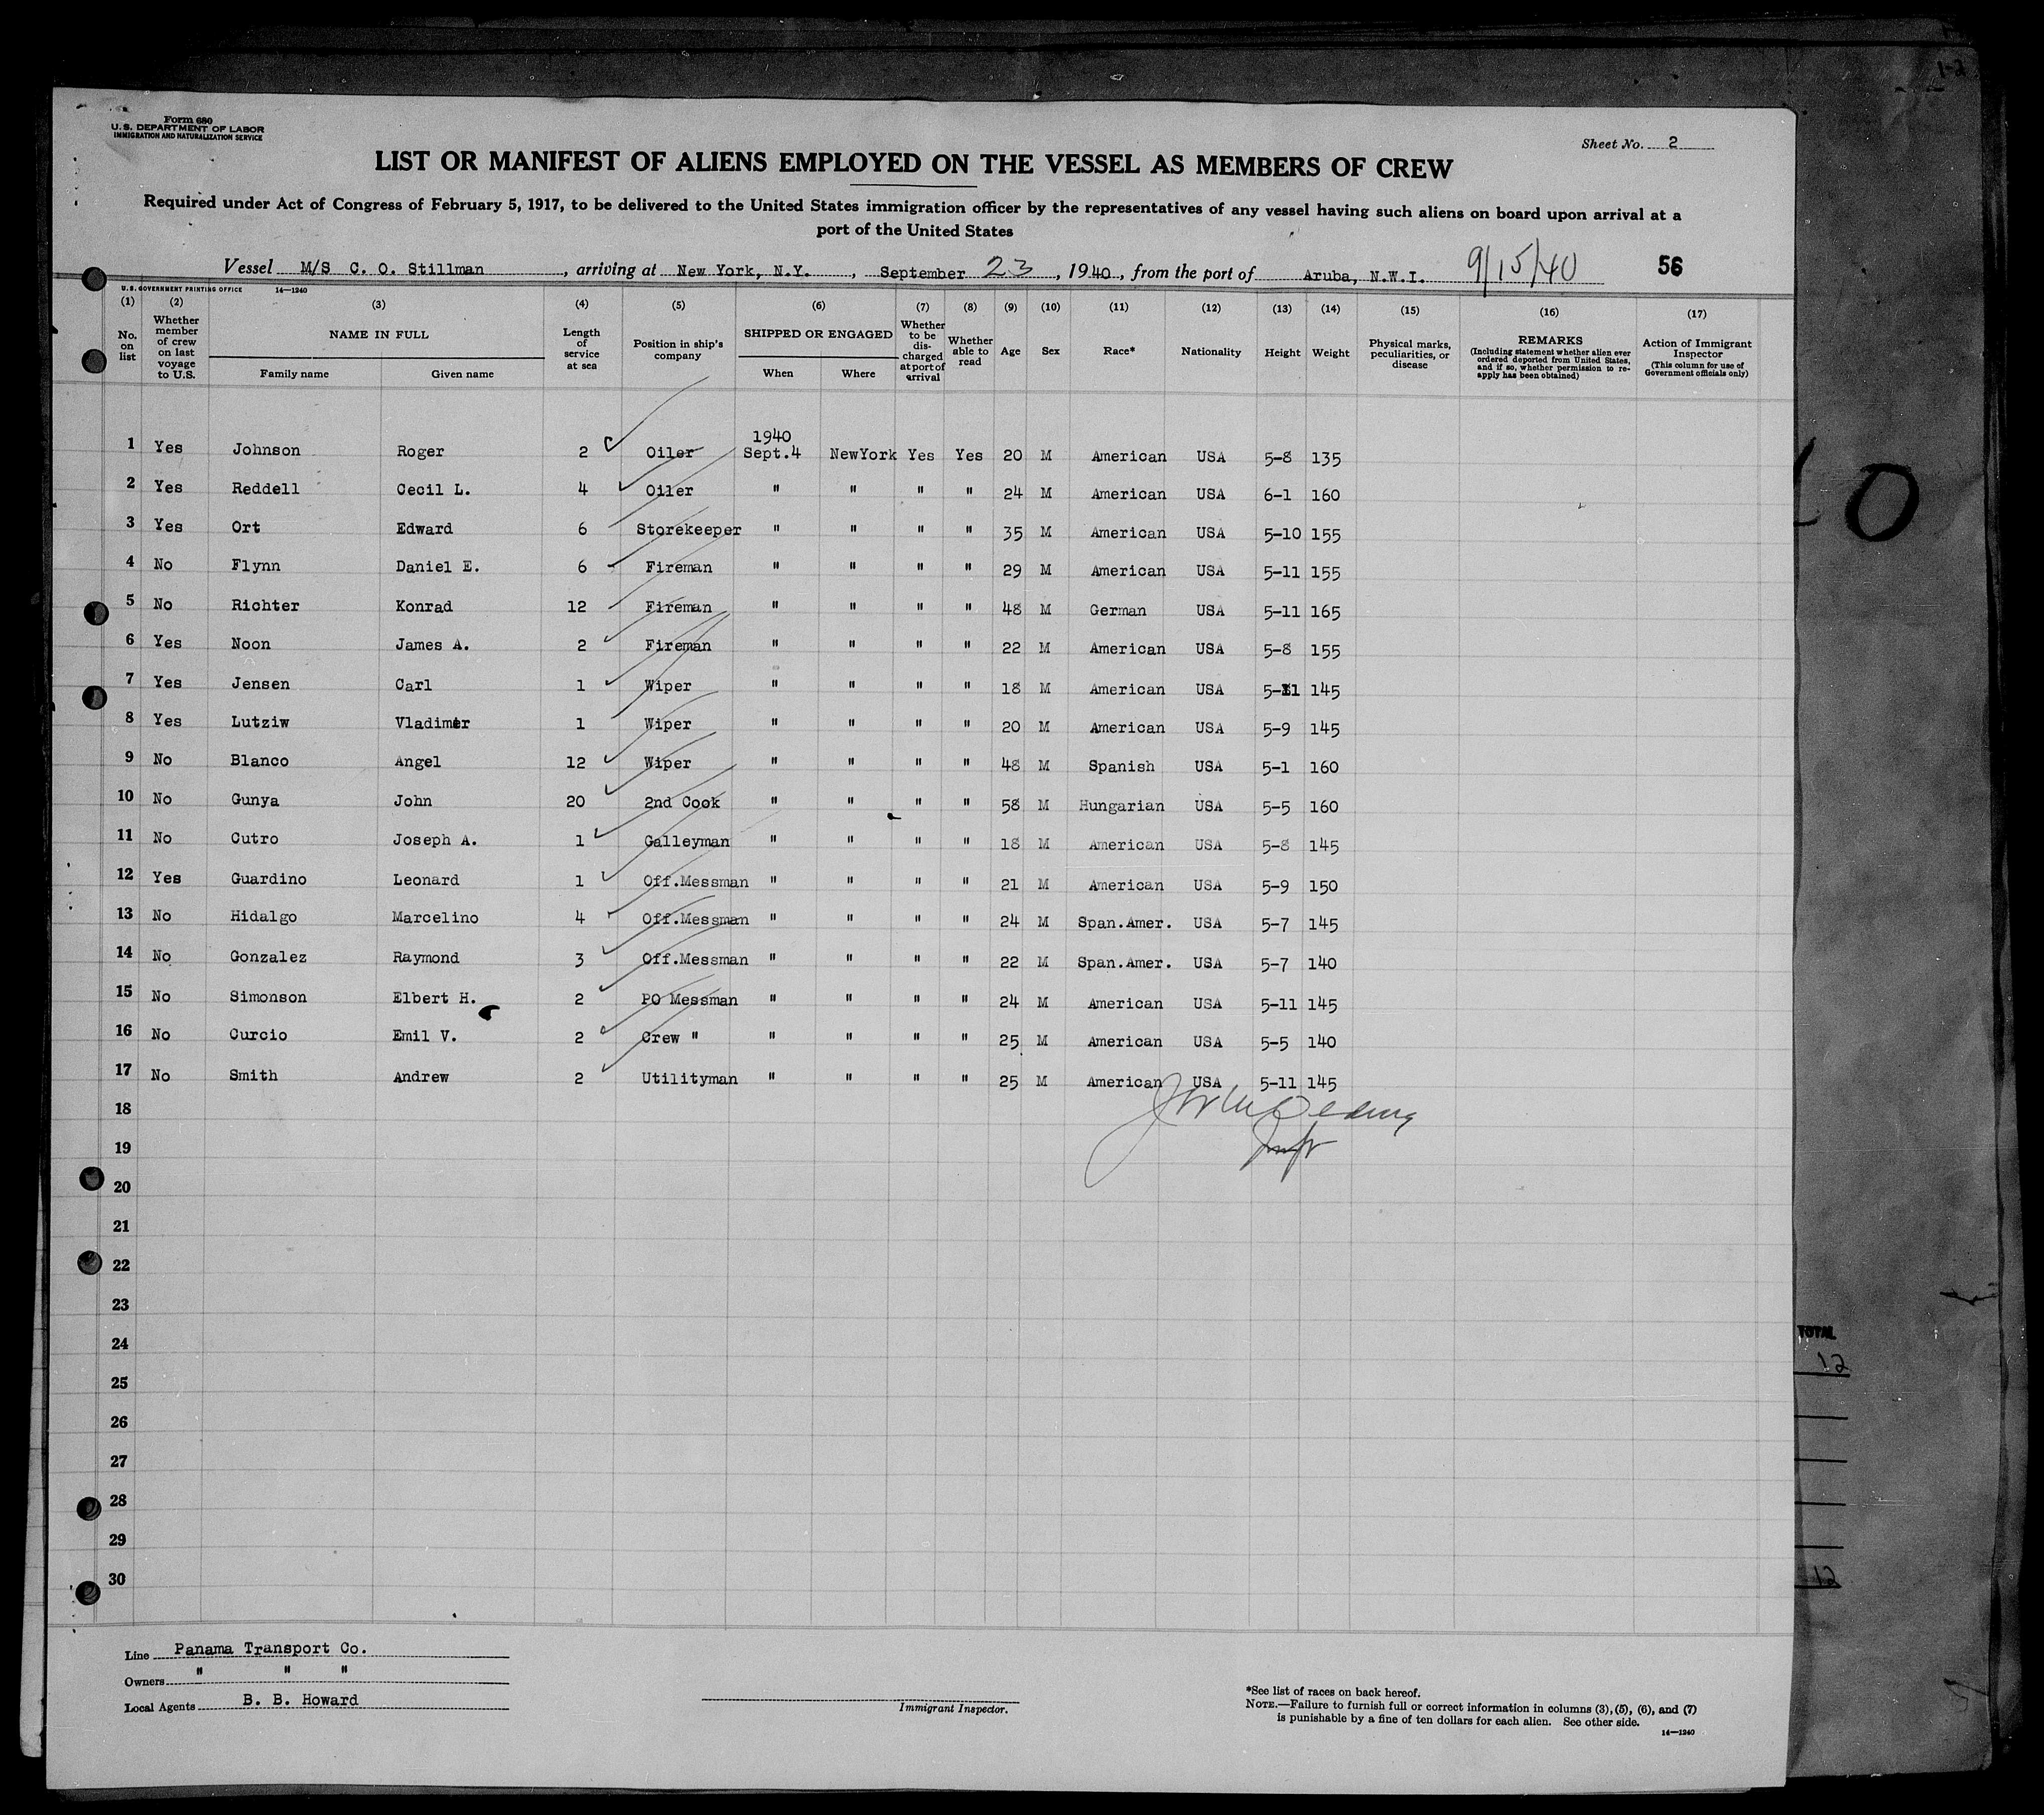 1-2
Form 680
U. S. DEPARTMENT OF LABOR
IMMIGRATION AND NATURALIZATION SERVICE
Sheet No. 2
LIST OR MANIFEST OF ALIENS EMPLOYED ON THE VESSEL AS MEMBERS OF CREW
Required under Act of Congress of February 5, 1917, to be delivered to the United States immigration officer by the representatives of any vessel having such aliens on board upon arrival at a
port of the United States
Vessel M/S C. O. Stillman, arriving at New York, N.Y., September 23, 1940, from the port of Aruba, N.W.I. 9/15/40 56
U. S. GOVERNMENT PRINTING OFFICE 14—1240
(1) (2) (3) (4) (5) (6) (7) (8) (9) (10) (11) (12) (13) (14) (15) (16) (17)
No. on list
Whether member of crew on last voyage to U.S.
NAME IN FULL
Family name Given name
Length of service at sea
Position in ship's company
SHIPPED OR ENGAGED
When Where
Whether to be discharged at port of arrival
Whether able to read
Age
Sex
Race*
Nationality
Height
Weight
Physical marks, peculiarities, or disease
REMARKS
(Including statement whether alien ever ordered deported from United States, and if so, whether permission to reapply has been obtained)
Action of Immigrant Inspector
(This column for use of Government officials only)
1940
1 Yes Johnson Roger 2 Oiler Sept.4 NewYork Yes Yes 20 M American USA 5-8 135
2 Yes Reddell Cecil L. 4 Oiler " " " " 24 M American USA 6-1 160
3 Yes Ort Edward 6 Storekeeper " " " " 35 M American USA 5-10 155
4 No Flynn Daniel E. 6 Fireman " " " " 29 M American USA 5-11 155
5 No Richter Konrad 12 Fireman " " " " 48 M German USA 5-11 165
6 Yes Noon James A. 2 Fireman " " " " 22 M American USA 5-8 155
7 Yes Jensen Carl 1 Wiper " " " " 18 M American USA 5-11 145
8 Yes Lutziw Vladimer 1 Wiper " " " " 20 M American USA 5-9 145
9 No Blanco Angel 12 Wiper " " " " 48 M Spanish USA 5-1 160
10 No Gunya John 20 2nd Cook " " " " 58 M Hungarian USA 5-5 160
11 No Cutro Joseph A. 1 Galleyman " " " " 18 M American USA 5-8 145
12 Yes Guardino Leonard 1 Off.Messman " " " " 21 M American USA 5-9 150
13 No Hidalgo Marcelino 4 Off.Messman " " " " 24 M Span.Amer. USA 5-7 145
14 No Gonzalez Raymond 3 Off.Messman " " " " 22 M Span.Amer. USA 5-7 140
15 No Simonson Elbert H. 2 PO Messman " " " " 24 M American USA 5-11 145
16 No Curcio Emil V. 2 Crew " " " " " 25 M American USA 5-5 140
17 No Smith Andrew 2 Utilityman " " " " 25 M American USA 5-11 145
18
19
20
21
22
23
24
25
26
27
28
29
30
TOTAL
12
12
Line Panama Transport Co.
Owners " " "
Local Agents B. B. Howard
Immigrant Inspector.
*See list of races on back hereof.
NOTE.—Failure to furnish full or correct information in columns (3), (5), (6), and (7)
is punishable by a fine of ten dollars for each alien. See other side.
14—1240